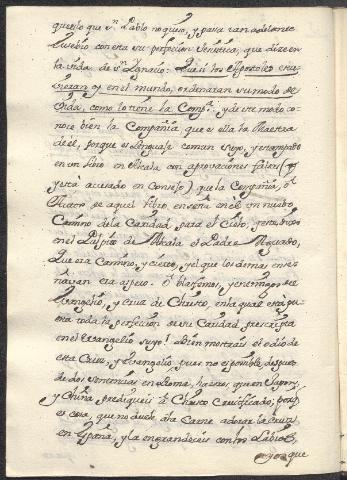 querello que Sn. Pablo no quiso, y passa tan adelante
Eusebio con esta su perfeccion Jesuitica, que dize en
la vida de Sn. Ignacio: Que si los Apostoles estu
viesen oy en el mundo, ordenaran su modo de
vida, como lo tiene la Compª. y de este modo co-
noce bien la Compañia que es ella la Maestra
de el, porque es lenguaje comun suyo, y estampado
en un libro en Alcalà con aprovaciones falsas (qe
yà està acusado en Consejo) que la Compañia, ò el
Auctor de aquel libro, enseña en èl un nuebo
Camino de la Caridad para el Cielo; y este, dixo
en el Pulpito de Alcalà el Padre Aguado,
Que era Camino, y cierto, y el que los demas ense-
ñavan era aspero. O blasfemos, y enemigos del
Evangelio, y Cruz de Christo, en la qual està pu
esta toda la perfeccion de su Caridad, y escripta
en el Evangelio suyo! Bien mostrais el odio de
esta Cruz, y Evangelio, pues no es posible, despues
de dos sentencias en Roma, hazer, que en Japon,
y China prediqueis à Christo Crucificado; porqe
es cosa, que no duele à la Carne adorar la Cruz
en España, y la engrandeceis con los Labios,
y en que